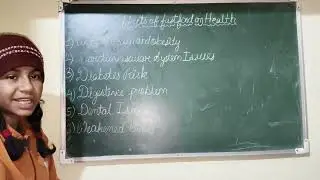 Effects of fast food on Health
1) Weight gain and obesity
2) Cardiovascular system Issues
3) Diabetes Risk
4) Digestive problem
5) Dental Issu
6) Weakened